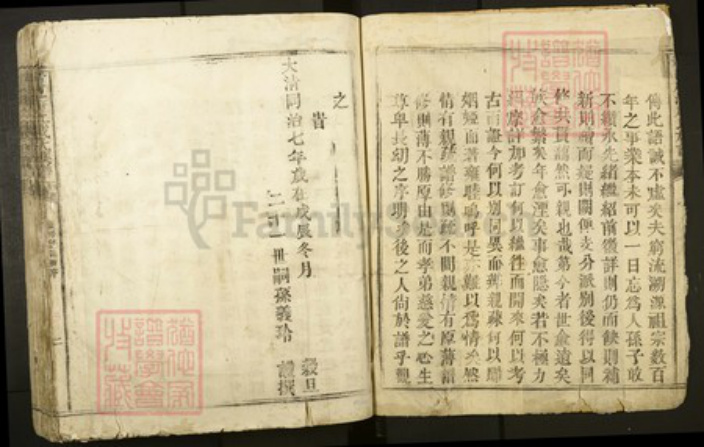 傳此語誠不虛矣夫窮流溯源祖宗數百
年之事業本未可以一日忘為人孫子敢
不纘承先緒繼紹前徽詳則仍而餘則補
新則續而疑則闕俾支分派別後得以同
條共貫藹然可親也哉第今者世愈遠矣
族愈繁矣年愈湮矣事愈隱矣若不極力
摩計加考訂何以繼往而開來何以考
古而證今何以別同異而辨親疎何以聯
烟婭而著雍睦嗚呼是亦難以為情矣然
情有親疎譜修則疎不間親情有原薄譜
修則薄不勝原由是而孝弟慈愛之心生
尊卑長幼之序明後之人尚於譜乎觀
之
旹
大清同治七年歲在戊辰冬月 穀旦
二十一世嗣孫義玲 謹撰
二
FamilySearch